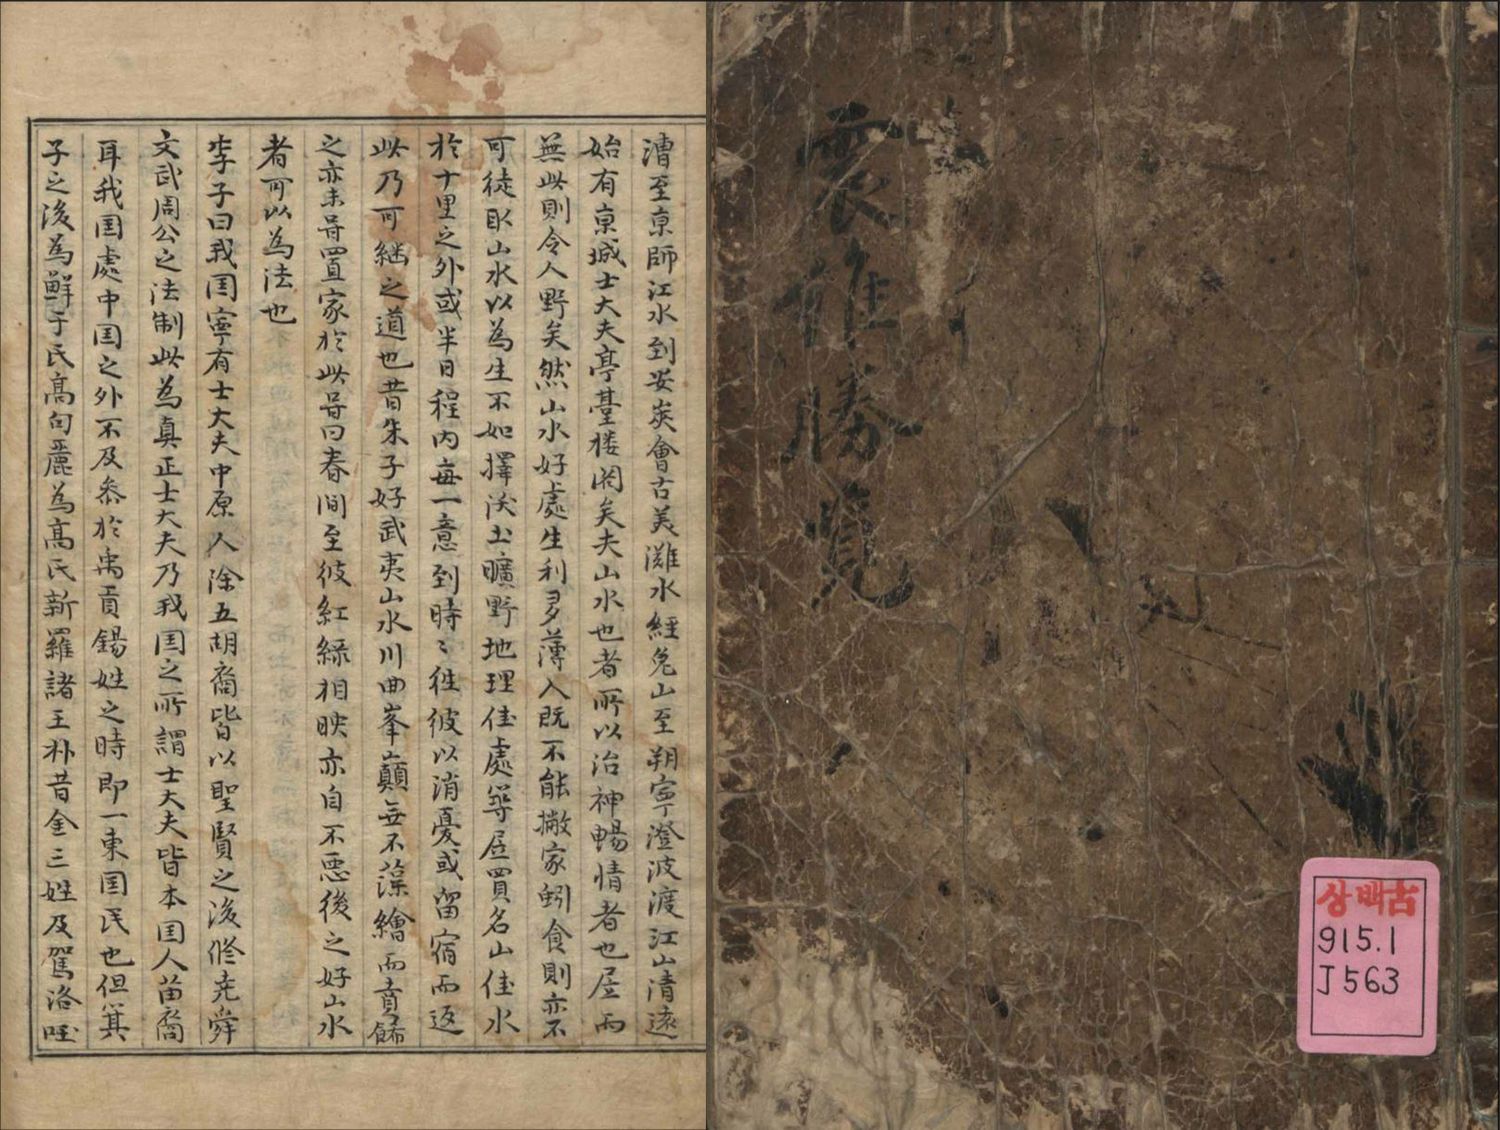 震維勝覽
상백古
915.1
J563
漕至京師江水到安炭會古美灘水經兔山至朔寧澄波渡江山清遠
始有京城士大夫亭䑓楼閣矣夫山水也者所以治神暢情者也居而
無此則令人野矣然山水好處生利多薄人既不能撇家蚓食則亦不
可徒取山水以為生不如擇沃土曠野地理佳處築居買名山佳水
於十里之外或半日程内每一意到時〻徃彼以消憂或留宿而返
此乃可継之道也昔朱子好武夷山水川曲峯巔無不藻繪而賁餙
之亦未嘗置家於此嘗曰春間至彼紅緑相映亦自不悪後之好山水
者可以為法也
李子曰我囯寧有士大夫中原人除五胡裔皆以聖賢之後修尭舜
文武周公之法制此為真正士大夫乃我囯之所謂士大夫皆本囯人苗裔
耳我囯處中囯之外不及叅於禹貢錫姓之時即一東囯民也但箕
子之後為鮮于氏高句麗為高氏新羅諸王朴昔金三姓及駕洛